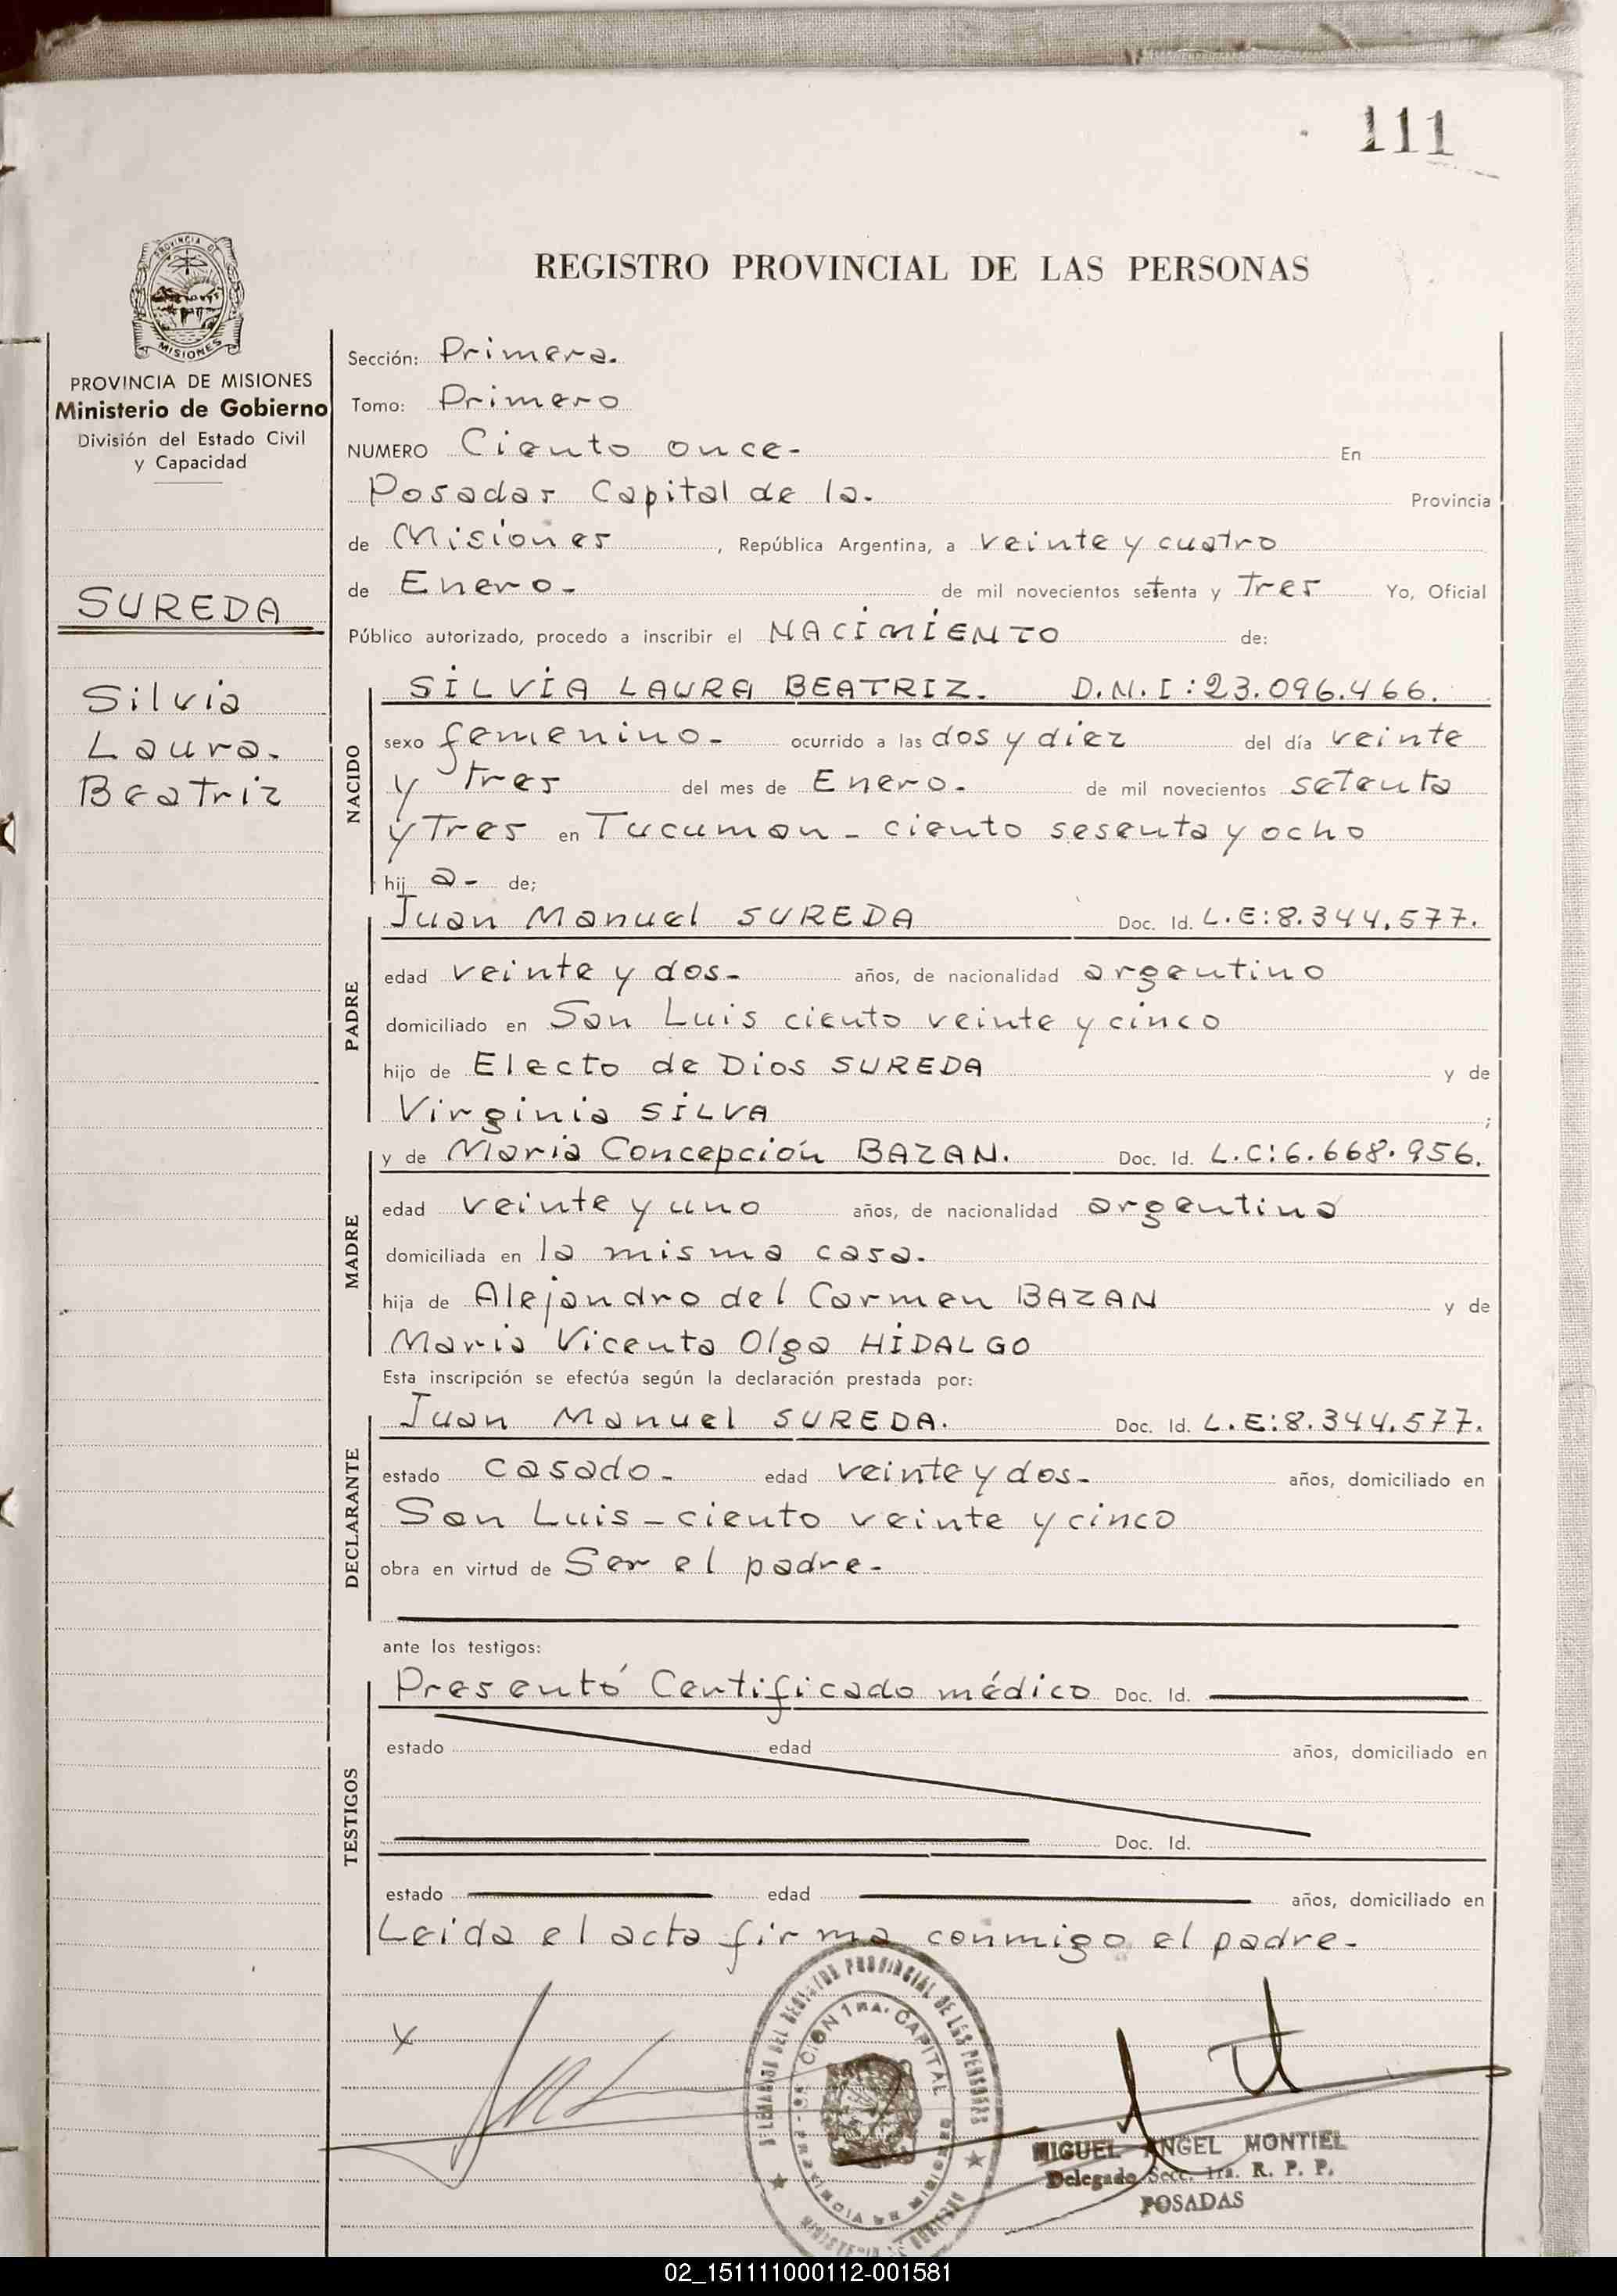 111
PROVINCIA DE
MISIONES
PROVINCIA DE MISIONES
Ministerio de Gobierno
División del Estado Civil
y Capacidad
SUREDA
Silvia
Laura.
Beatriz
REGISTRO PROVINCIAL DE LAS PERSONAS
Sección: Primera.
Tomo: Primero
NUMERO Ciento once- En
Posadas Capital de la. Provincia
de Misiones, República Argentina, a veinte y cuatro
de Enero- de mil novecientos setenta y Tres Yo, Oficial
Público autorizado, procedo a inscribir el NACIMIENTO de:
NACIDO
SILVIA LAURA BEATRIZ. D.N.I:23.096.466.
sexo femenino- ocurrido a las dos y diez del día veinte
y tres del mes de Enero. de mil novecientos setenta
y Tres en Tucuman - ciento sesenta y ocho
hij a- de;
PADRE
Juan Manuel SUREDA Doc. Id. L.E:8.344.577.
edad veinte y dos- años, de nacionalidad argentino
domiciliado en San Luis ciento veinte y cinco
hijo de Electo de Dios SUREDA y de
Virginia SILVA ;
MADRE
y de Maria Concepción BAZAN. Doc. Id. L.C:6.668.956.
edad veinte y uno años, de nacionalidad argentina
domiciliada en la misma casa.
hija de Alejandro del Carmen BAZAN y de
Maria Vicenta Olga HIDALGO
Esta inscripción se efectúa según la declaración prestada por:
DECLARANTE
Juan Manuel SUREDA. Doc. Id. L.E:8.344.577.
estado casado- edad veinte y dos- años, domiciliado en
San Luis - ciento veinte y cinco
obra en virtud de Ser el padre-
ante los testigos:
TESTIGOS
Presentó Certificado médico Doc. Id.
estado edad años, domiciliado en
Doc. Id.
estado edad años, domiciliado en
Leida el acta firma conmigo el padre-
X
DEL REGISTRO PROVINCIAL DE LAS PERSONAS
1RA. CAPITAL
MIGUEL ANGEL MONTIEL
Delegado Secc. 1ra. R. P. P.
POSADAS
02_151111000112-001581